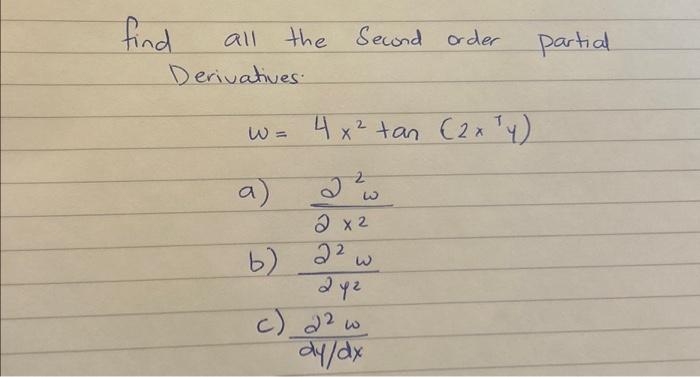 find all the Second order partial
Derivatives.
w = 4x² tan (2x⁷y)
a) ∂²w
∂x2
b) ∂² w
∂y²
c) ∂² w
dy/dx